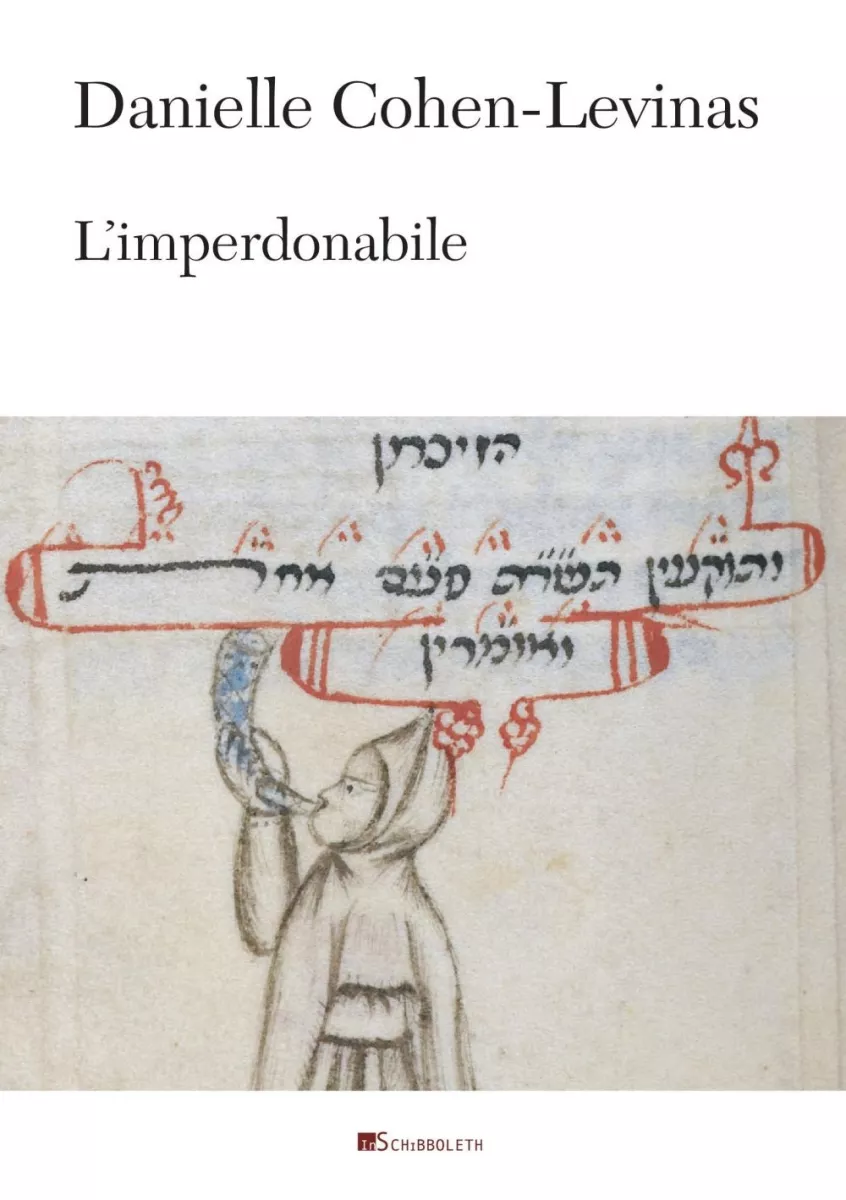 Danielle Cohen-Levinas
L’imperdonabile
הזיכרון
ותוקעין תשרת פעם אחרת
ואומרין
InSCHIBBOLETH